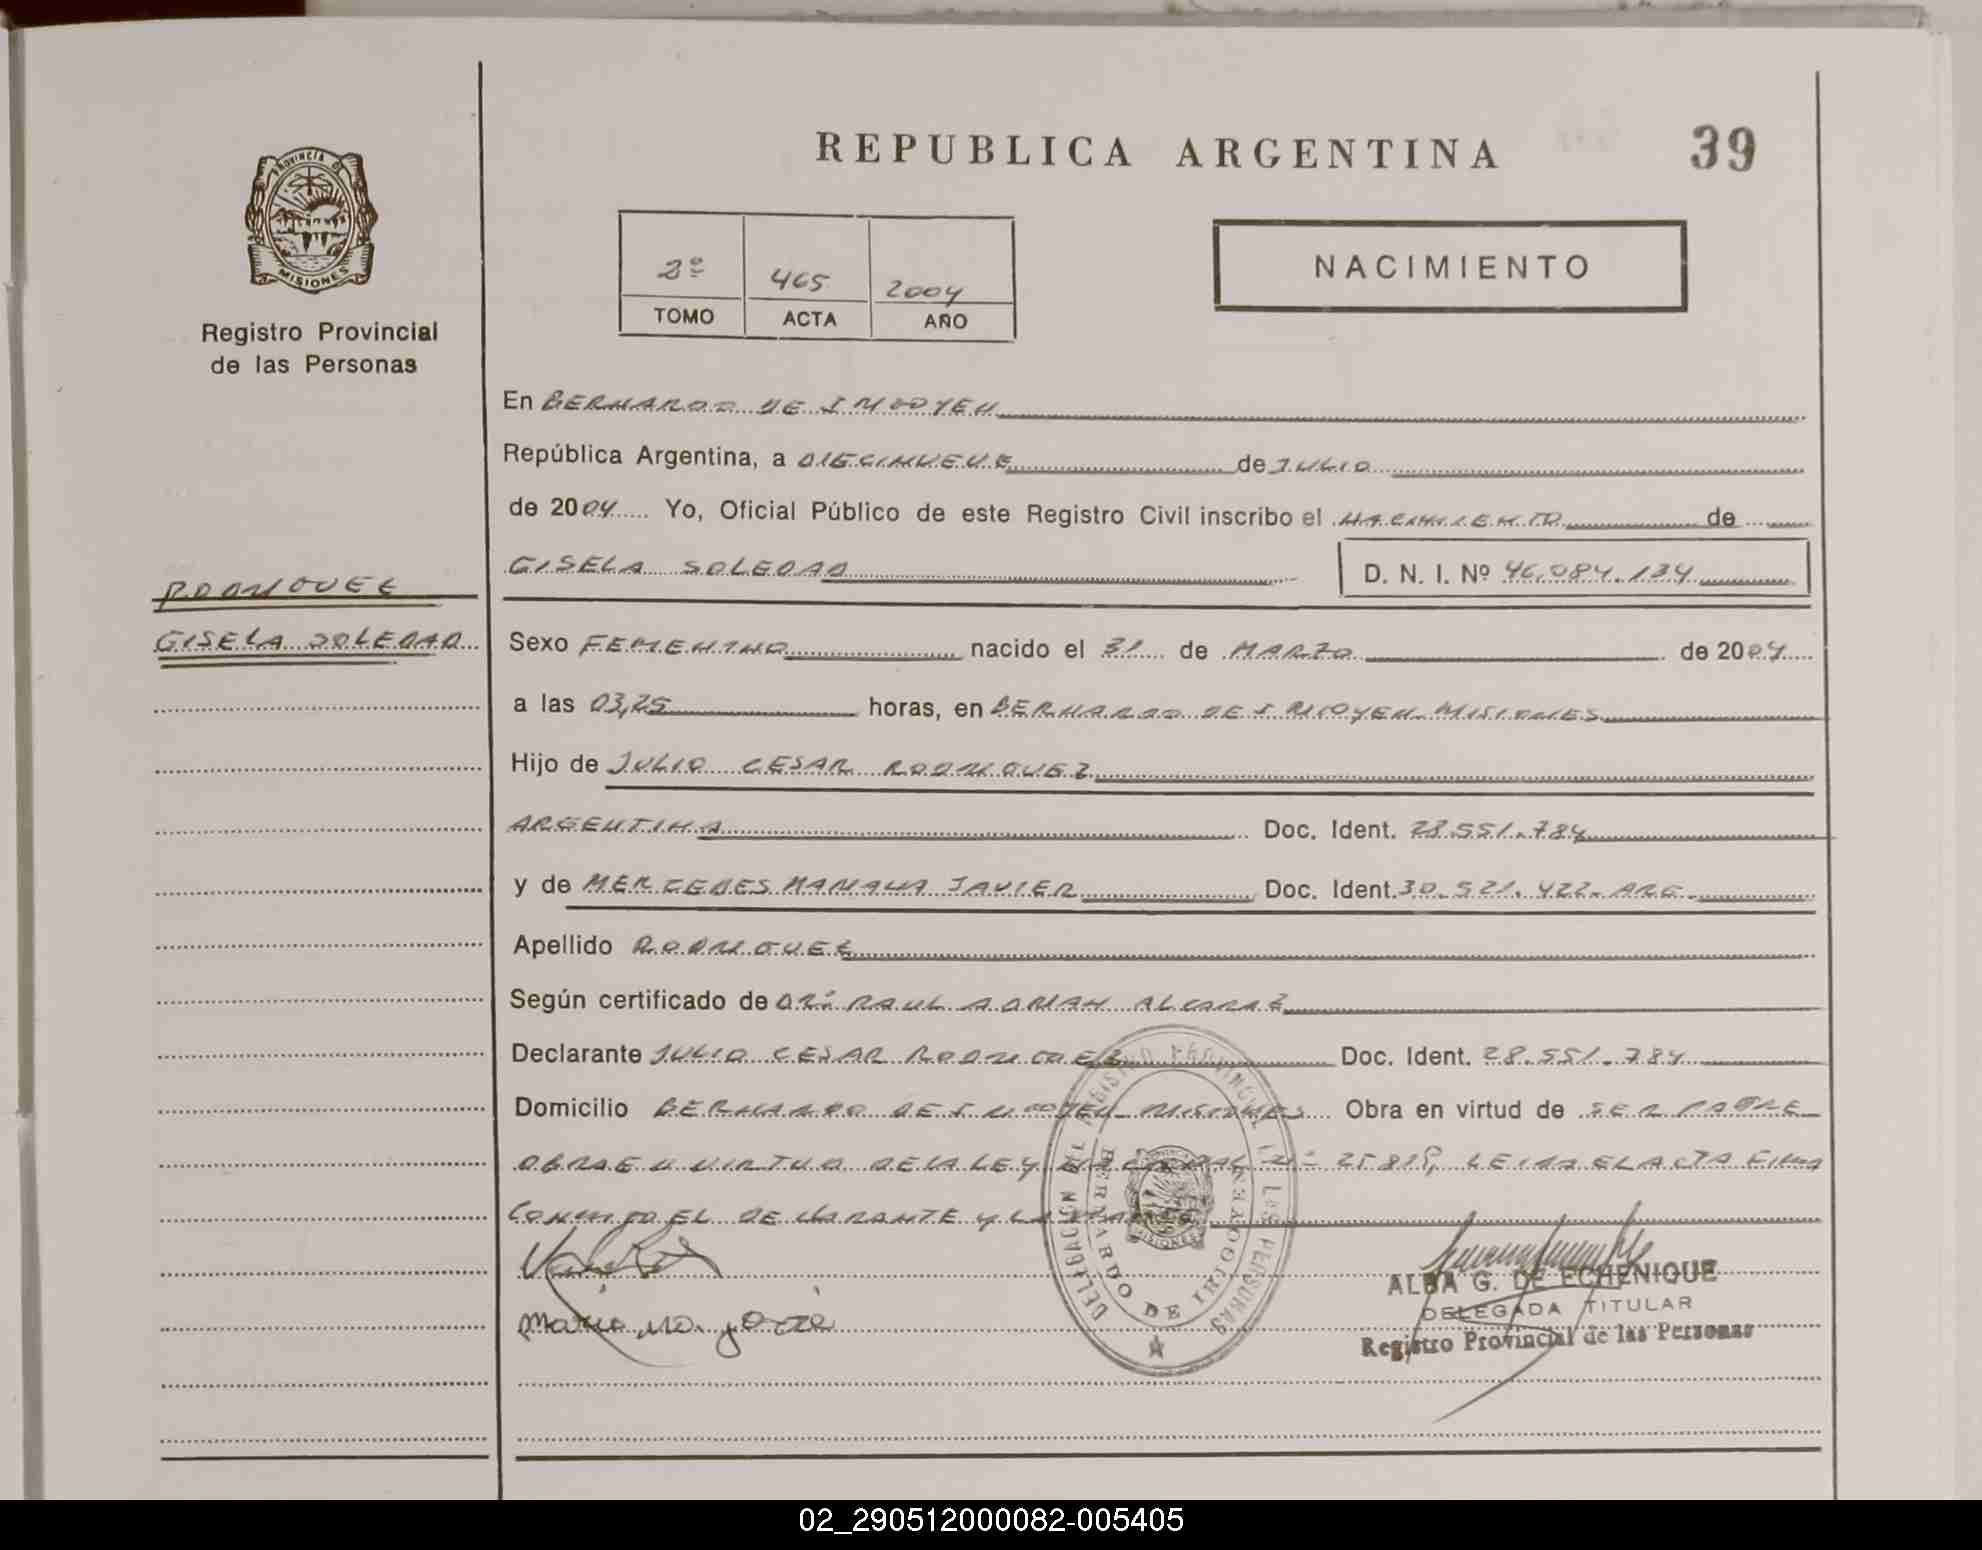 REPUBLICA ARGENTINA
39
PROVINCIA DE
MISIONES
Registro Provincial
de las Personas
2º 465 2004
TOMO ACTA AÑO
NACIMIENTO
En BERNARDO DE IRIGOYEN
República Argentina, a DIECINUEVE de JULIO
de 2004 Yo, Oficial Público de este Registro Civil inscribo el NACIMIENTO de
GISELA SOLEDAD D. N. I. Nº 46.084.134
RODRIGUEZ
GISELA SOLEDAD
Sexo FEMENINO nacido el 31 de MARZO de 2004
a las 03,25 horas, en BERNARDO DE IRIGOYEN MISIONES
Hijo de JULIO CESAR RODRIGUEZ
ARGENTINA Doc. Ident. 28.551.784
y de MERCEDES MARIANA JAVIER Doc. Ident. 30.521.422 ARG
Apellido RODRIGUEZ
Según certificado de DR: RAUL ADRIAN ALVAREZ
Declarante JULIO CESAR RODRIGUEZ Doc. Ident. 28.551.784
Domicilio BERNARDO DE IRIGOYEN MISIONES Obra en virtud de SER PADRE
OBRA EN VIRTUD DE LA LEY NACIONAL Nº 25819, LEIDA EL ACTA FIRMA
CONMIGO EL DECLARANTE Y LA MADRE
DELEGACION DEL REGISTRO PROVINCIAL DE LAS PERSONAS
BERNARDO DE IRIGOYEN
MISIONES
ALBA G. DE ECHENIQUE
DELEGADA TITULAR
Registro Provincial de las Personas
02_290512000082-005405